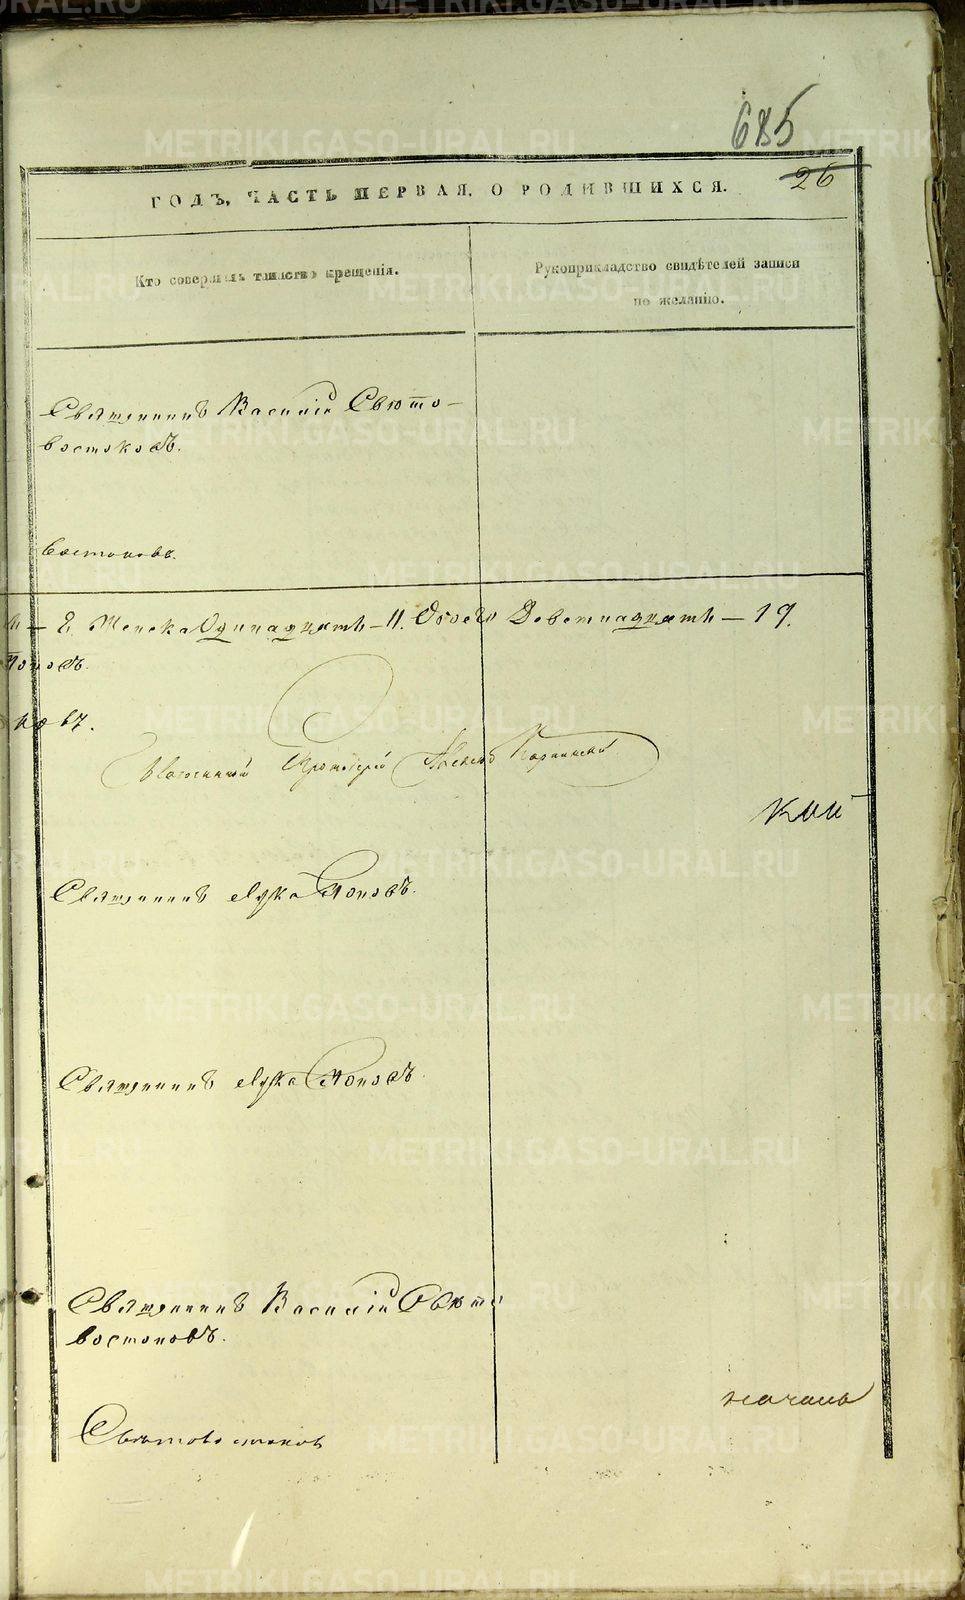 685
26
ГОДЪ, ЧАСТЬ ПЕРВАЯ, О РОДИВШИХСЯ.
Кто совершалъ таинство крещенія.
Рукоприкладство свидѣтелей записи
по желанію.
Священникъ Василій Свѣто-
востоковъ.
востоковъ.
8. Женска Одинадцять – 11. Обоего Девятнадцять – 19.
Поповъ.
ковъ.
Протоіерей
Священникъ Лука Поповъ.
Священникъ Лука Поповъ
Священникъ Василій Свѣто
востоковъ.
Свѣтовостоковъ
METRIKI.GASO-URAL.RU